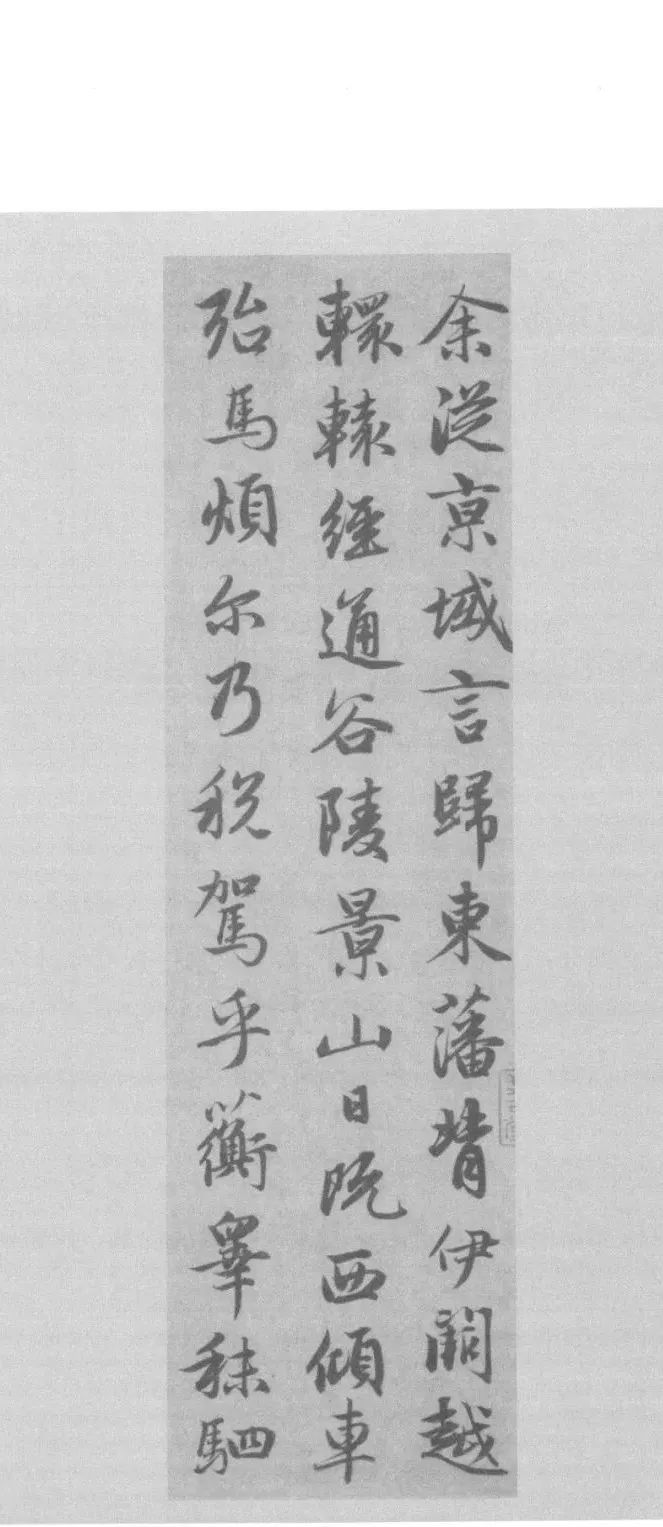 余從京域言歸東藩背伊闕越
轘轅經通谷陵景山日既西傾車
殆馬煩尔乃税駕乎蘅皋秣駟